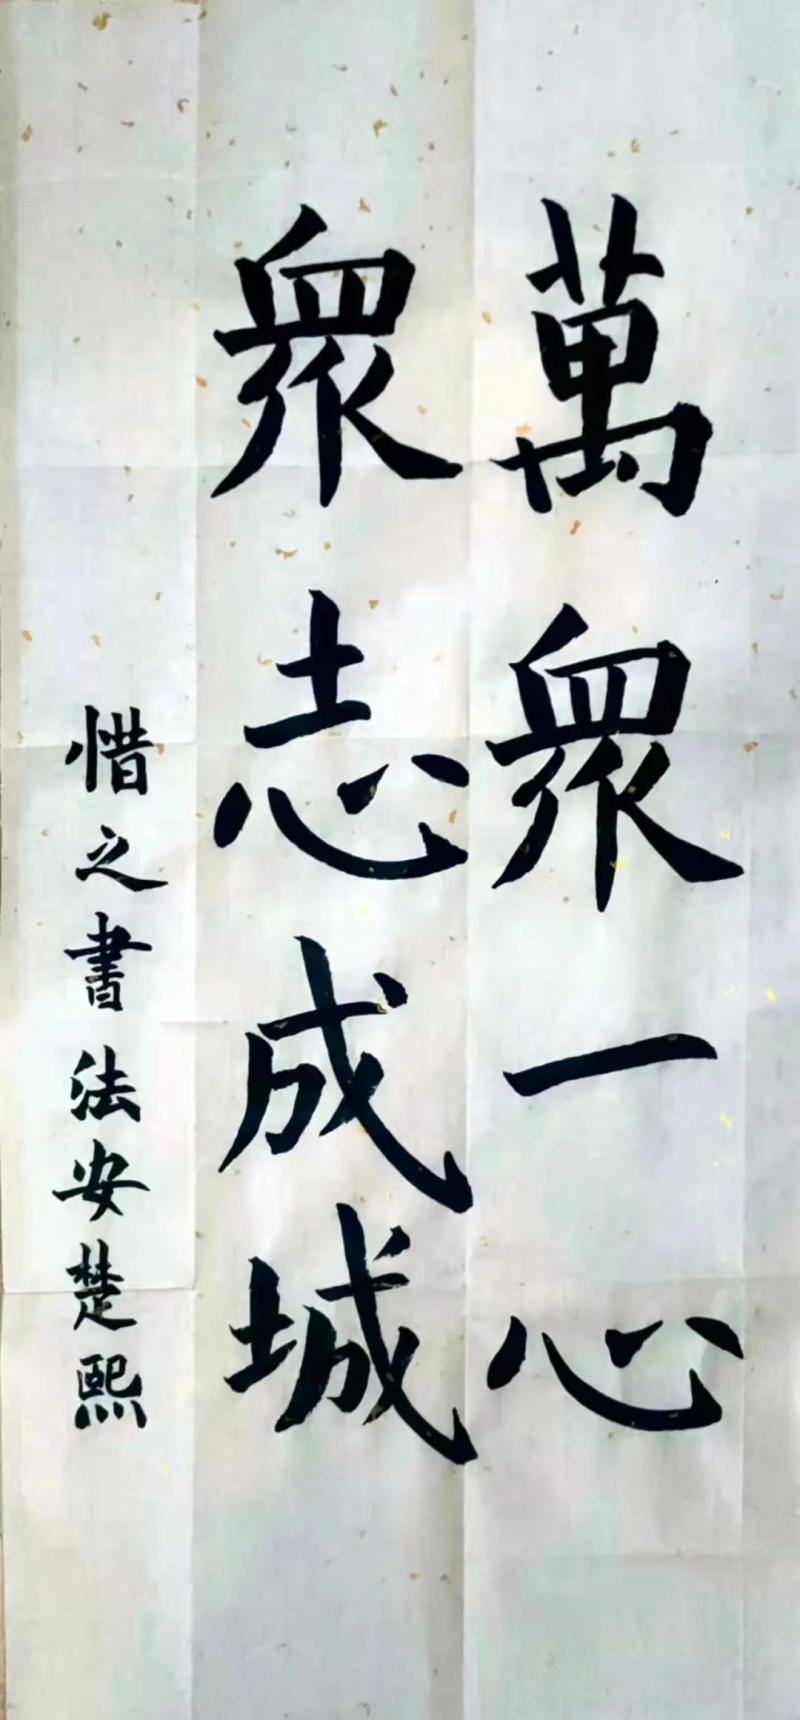 萬眾一心
眾志成城
惜之書法安楚熙